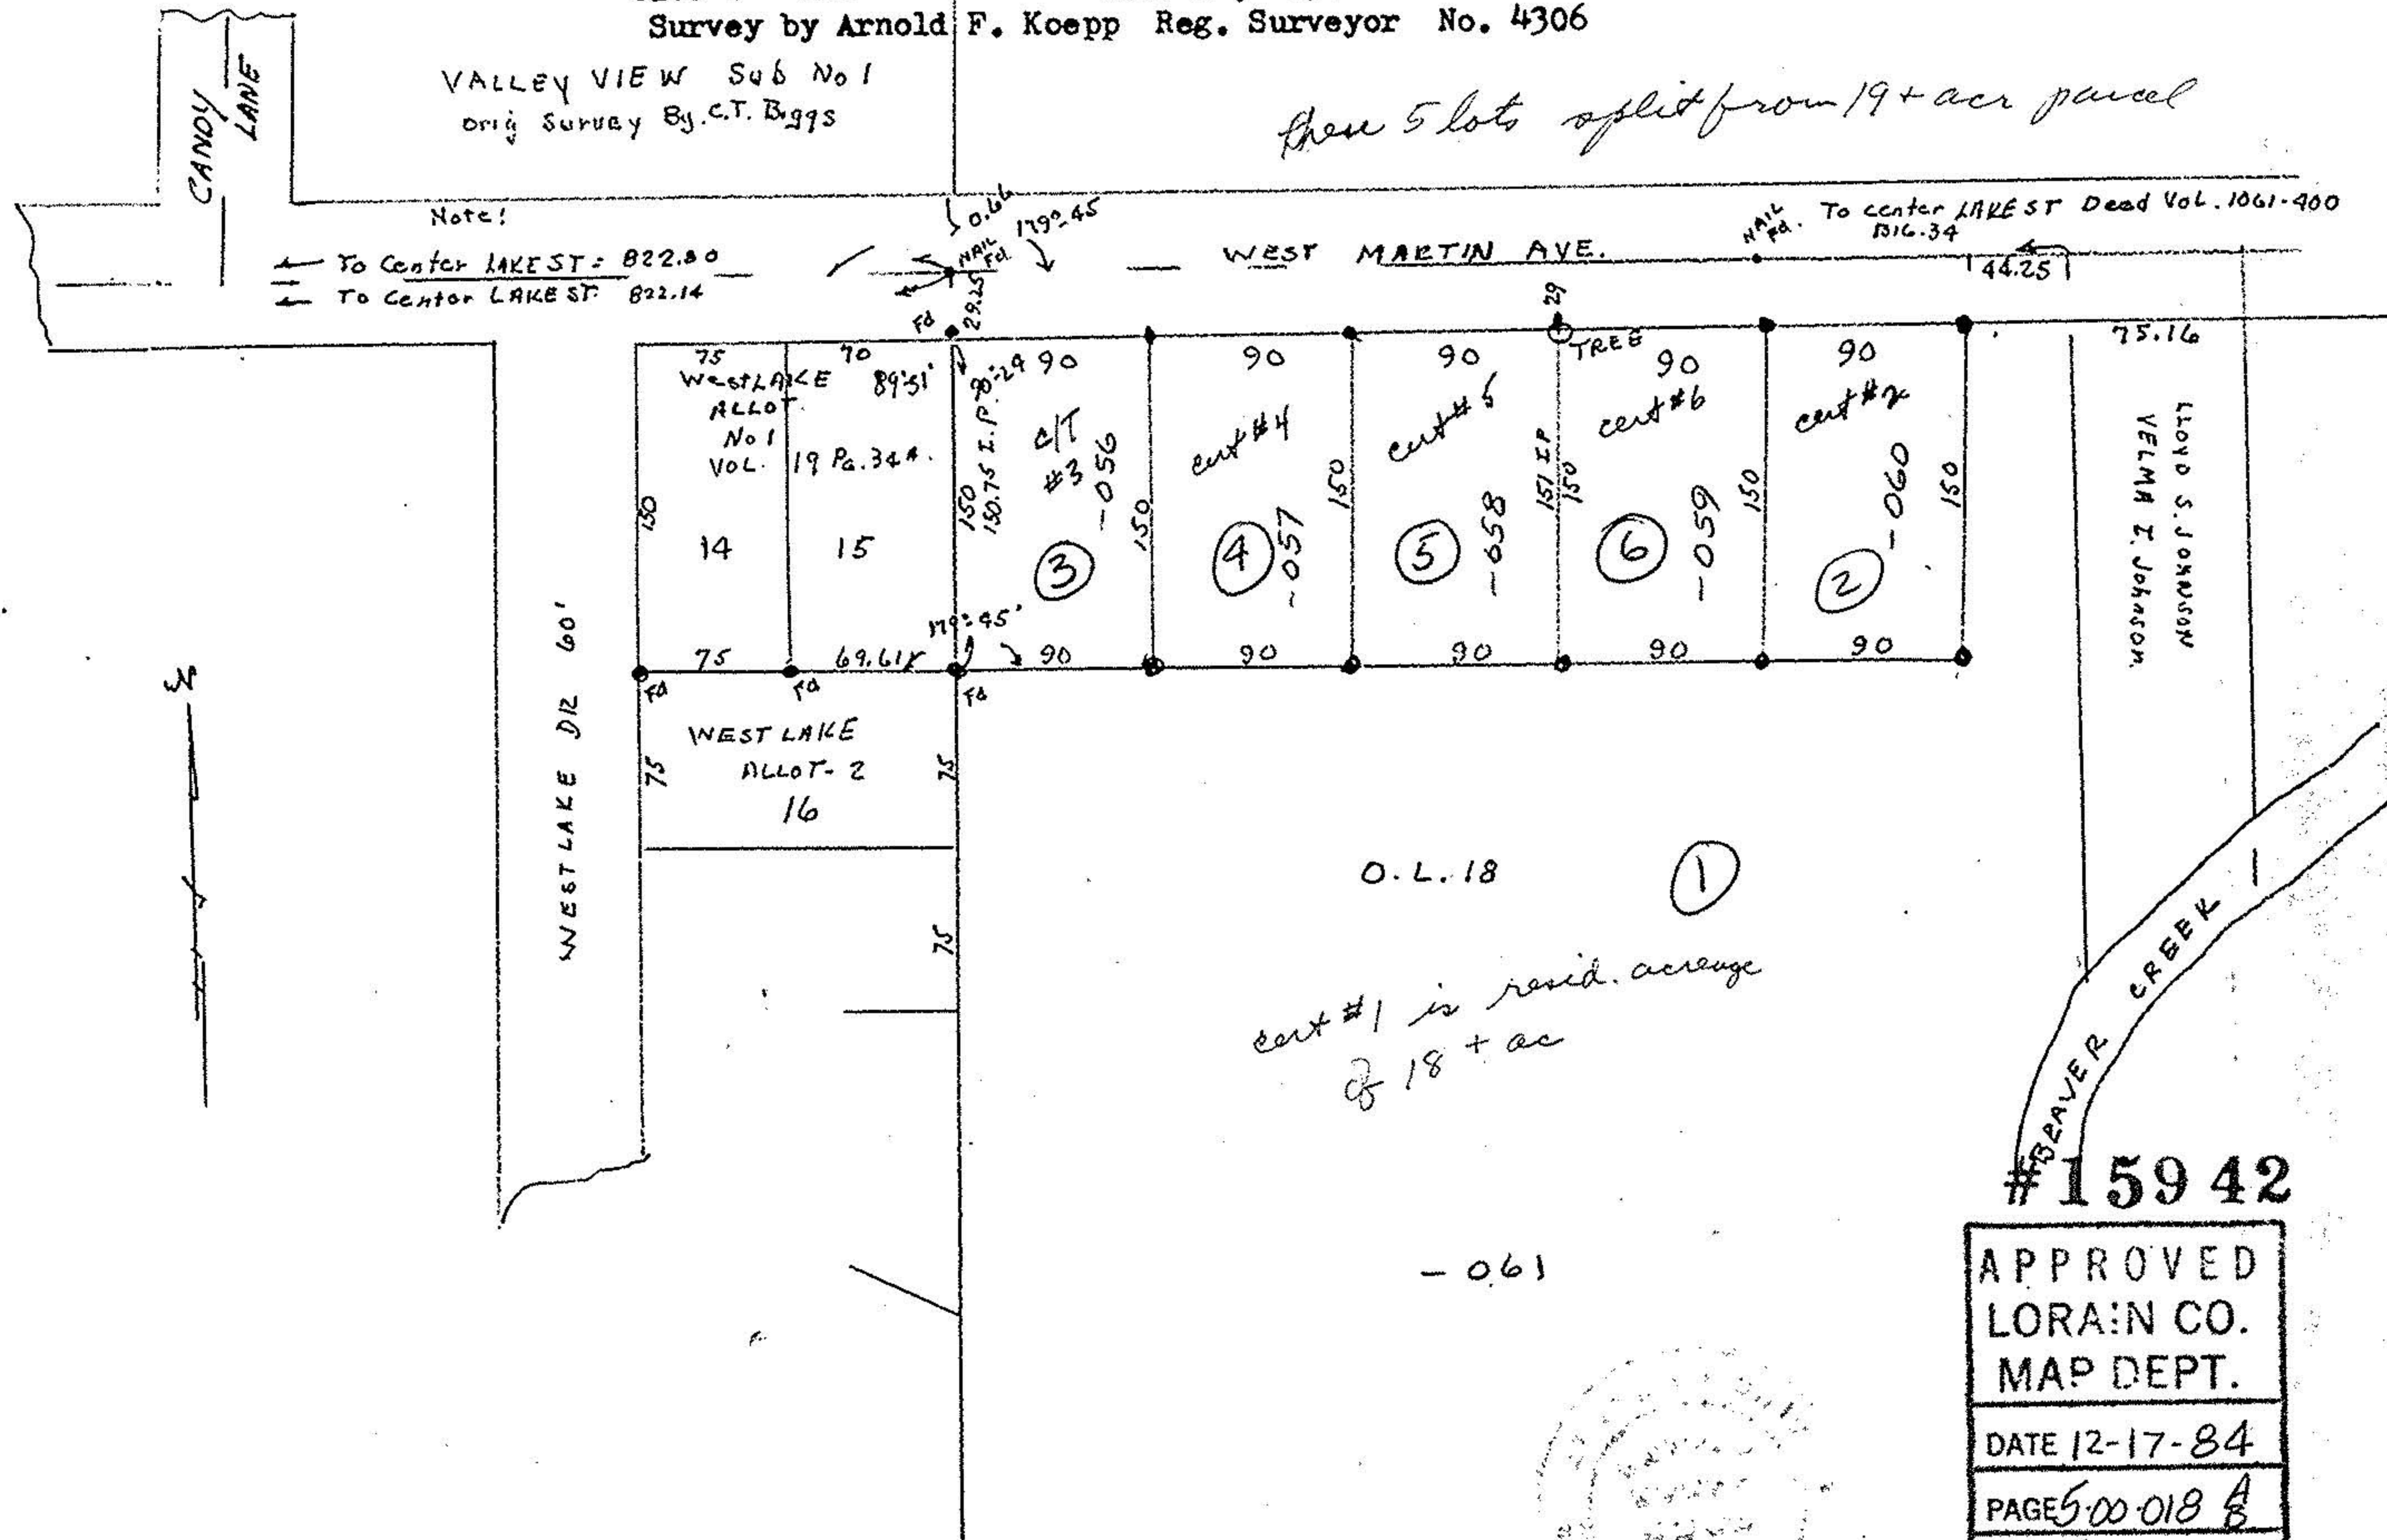 Survey by Arnold F. Koepp Reg. Surveyor No. 4306
CANDY
LANE
VALLEY VIEW Sub No 1
Orig Survey By. C.T. Biggs
these 5 lots split from 19+ acr parcel
Note!
← To Center LAKE ST = 822.80
← To Center LAKE ST. 822.14
0.66
179°-45
NAIL
Fd.
29.25
Fd
WEST MARTIN AVE.
NAIL
Fd.
To center LAKE ST Deed Vol. 1061-400
1316.34
44.25
29
TREE
75.16
75
70
WestLAKE
ALLOT.
No 1
VOL. 19 PG. 34A.
89°51'
90°-29
90
90
90
90
90
150
14
15
150
150.75 I.P.
c/T
#3
-056
3
150
cert #4
4
-057
150
cert #5
5
-058
151 I.P
150
cert #6
6
-059
150
cert #2
2
-060
150
LLOYD S. JOHNSON
VELMA I. Johnson
179°-45'
75
69.61
90
90
90
90
90
Fd
Fd
Fd
N
WESTLAKE DR 60'
WEST LAKE
ALLOT-2
16
75
75
75
O.L.18
1
cert #1 is resid. acreage
of 18 + ac
BEAVER CREEK
-061
#15942
APPROVED
LORAIN CO.
MAP DEPT.
DATE 12-17-84
PAGE 5-00-018 A
B